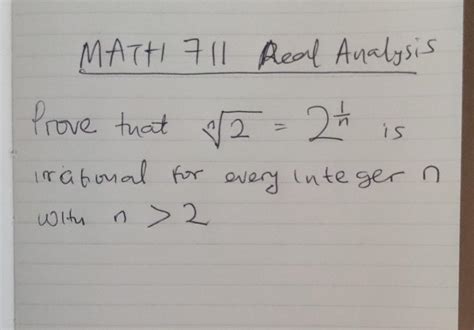 MATH 711 Real Analysis
Prove that ⁿ√2 = 2^{1/n} is
irrational for every integer n
with n > 2